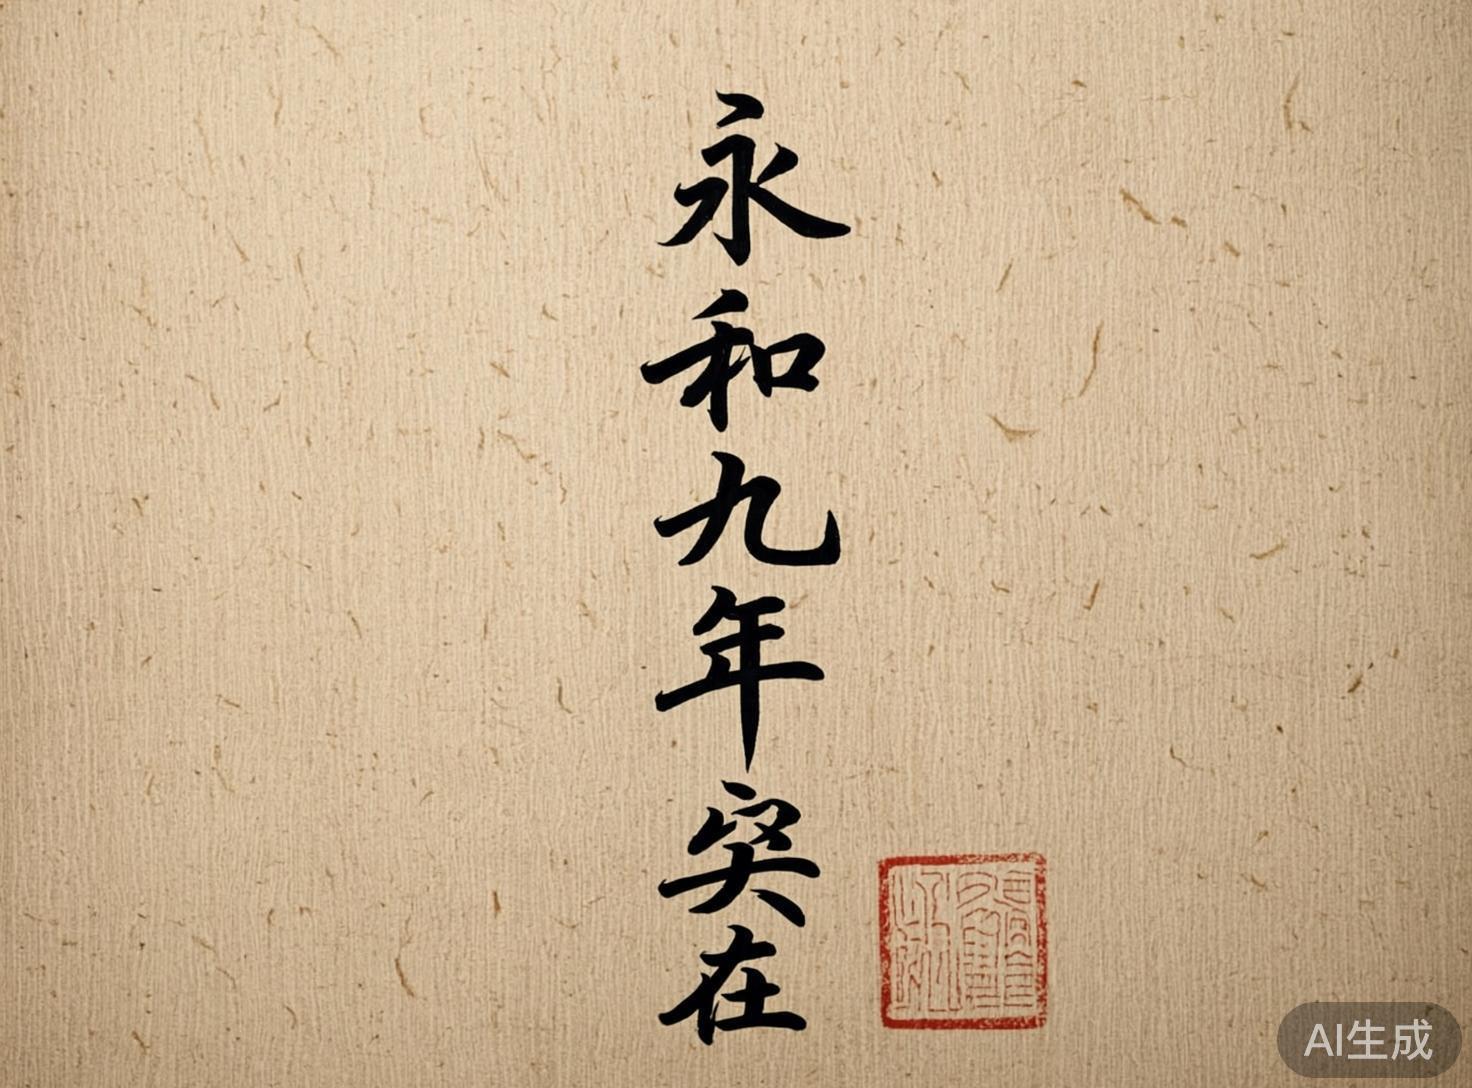 永和九年突在
AI生成